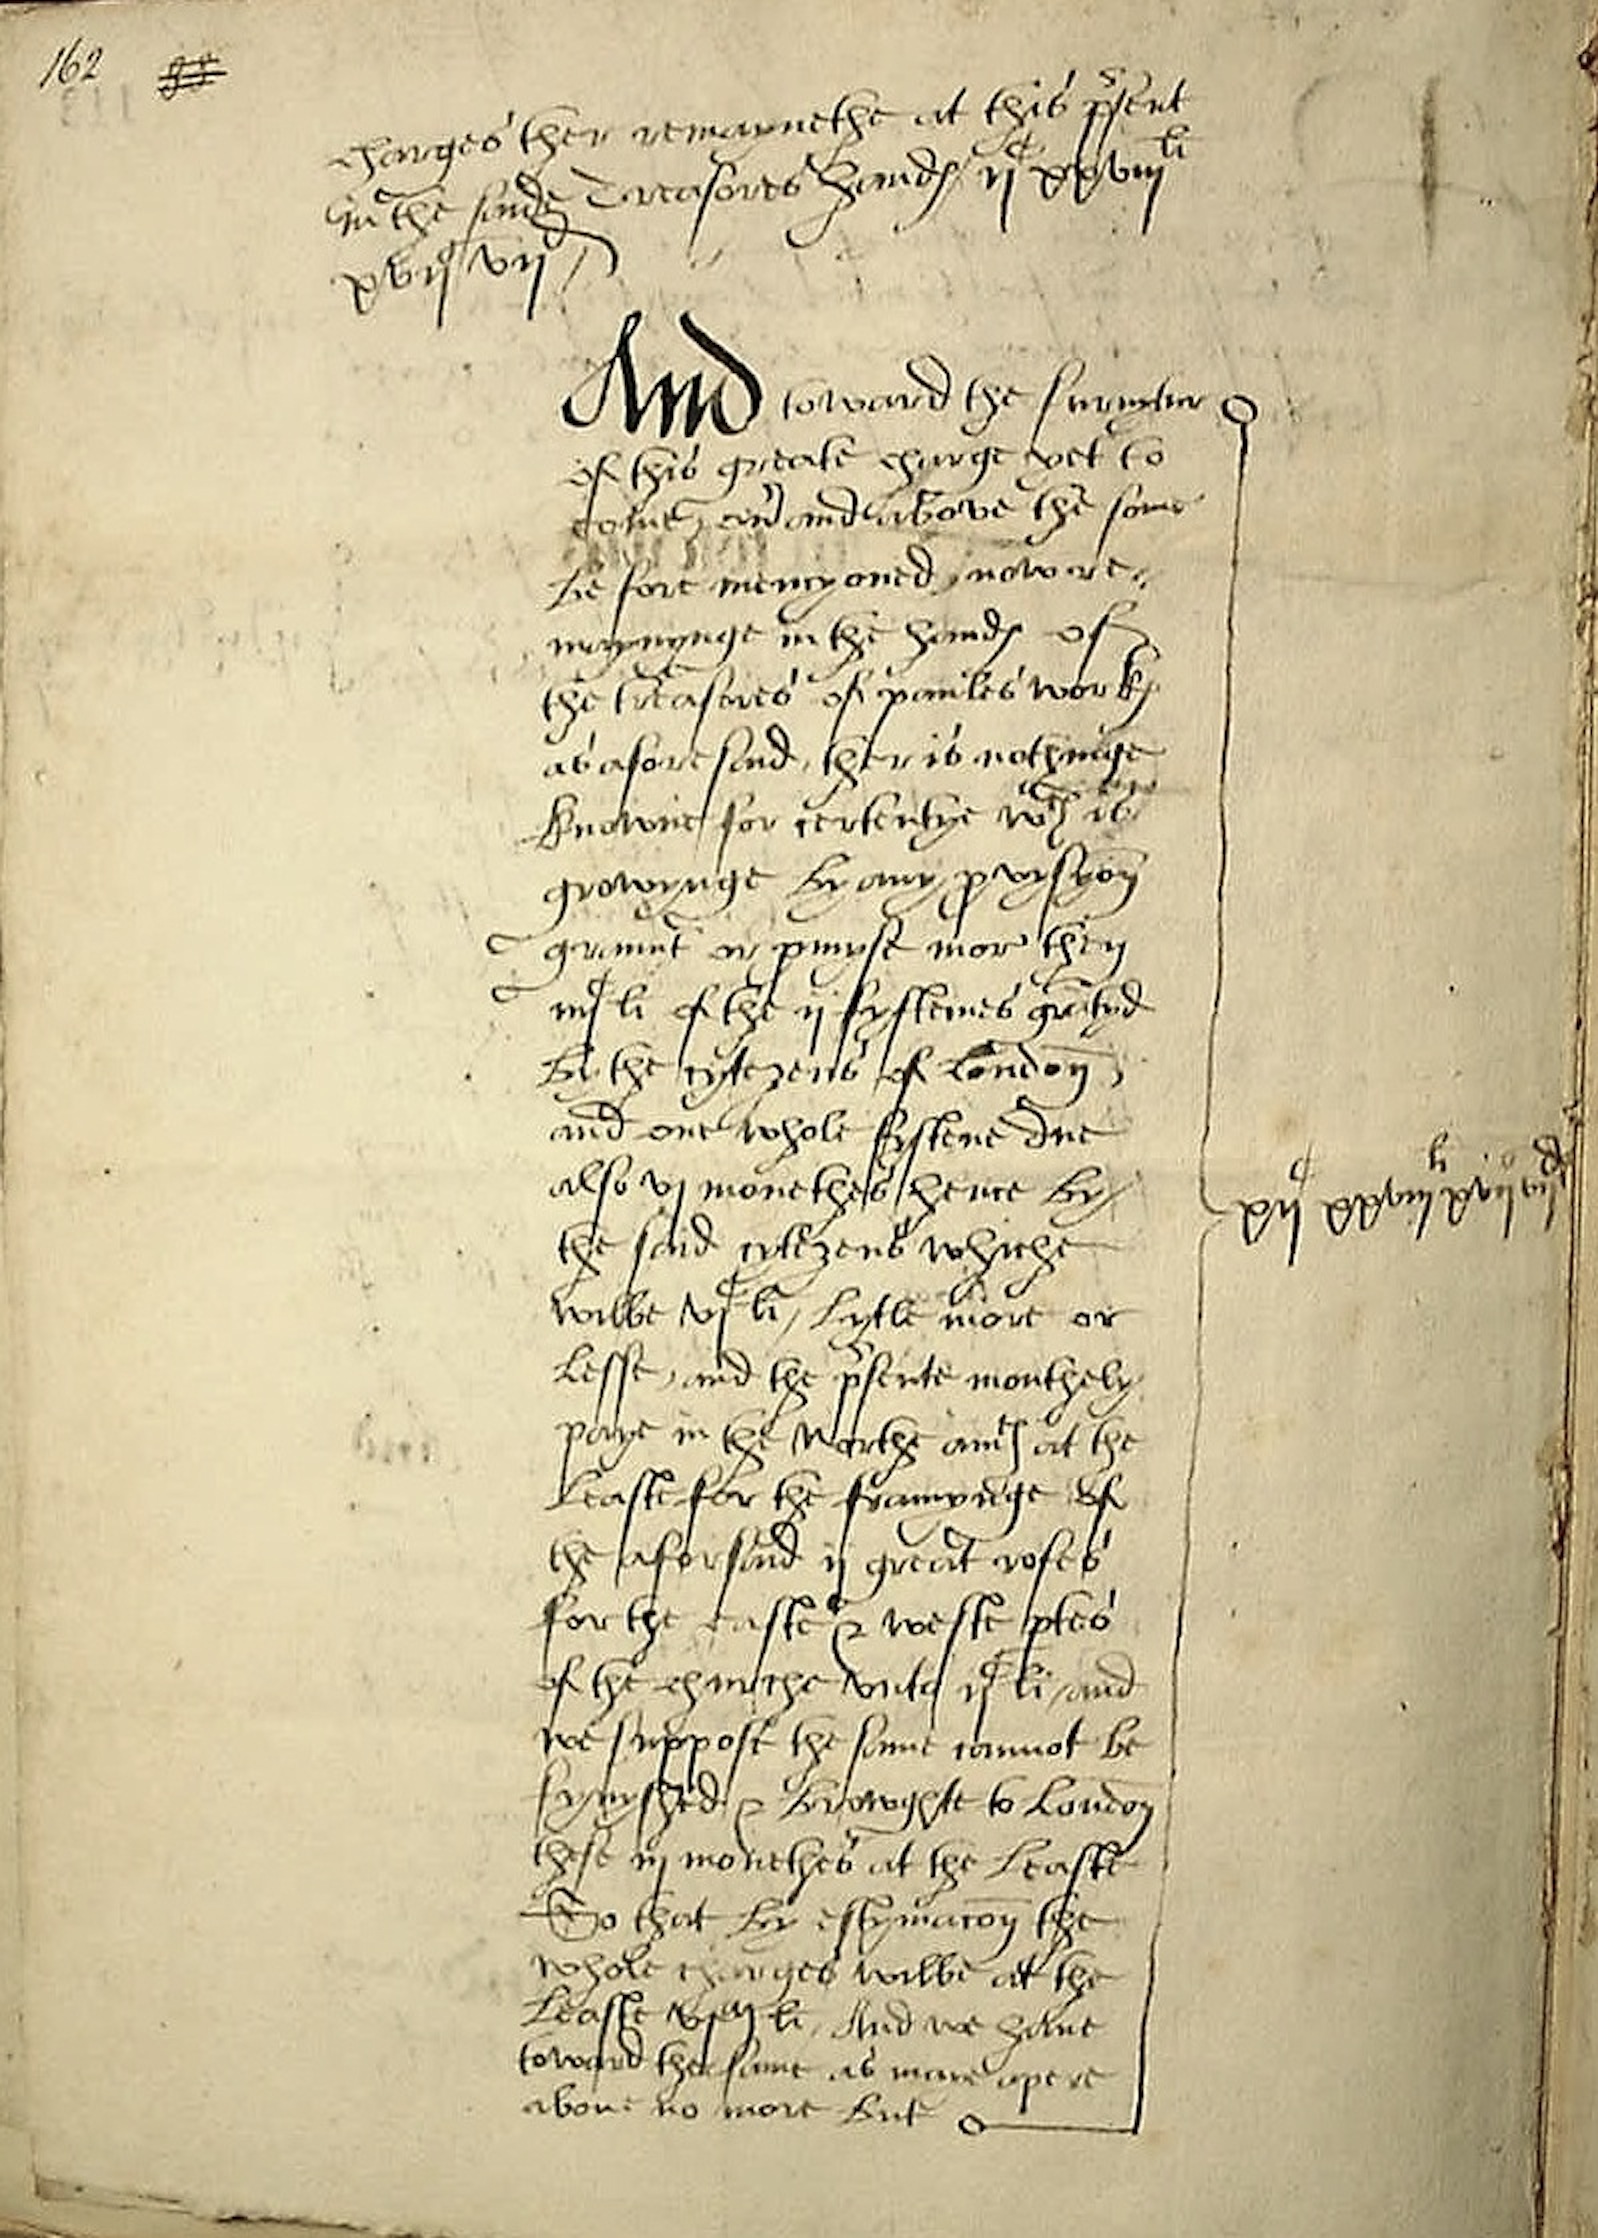 162
charges ther remaynethe at this pſent
in the said Treasores hands ijᶜ xxviijˡⁱ
xvijˢ vijᵈ
And toward the furnytur
of this greate charge yet to
come, ou' and above the some
be fore mencyoned, nowe re=
maynynge in the hands of
the treasores of paules works
as aforesaid, ther is nothinge
knowne for certentye wᶜʰ is
growynge by any pvysyon
graunt or pmyse mor then
iiijᶜ li of the ij fystenes grantyd
by the cytezens of London
and one whole fystene due
also vj monethes hence by
the said cytezens whiche
wilbe vjᶜ li, lytle more or
lesse, and the pſente monthely
paye in the Northe amᵗʰ at the
leaste for the framynge of
the aforsaid ij great rofes
for the easte & weste ptes
of the churche unto ijᶜ li, and
we suppose the same cannot be
fynyshed & browghte to London
these iij monethes at the leaste
So that by estymacon the
whole charges wilbe at the
leaste li, And we have
toward the same as maye apere
above no more but
xijᶜ xxviijˡⁱ xvijˢ vijᵈ